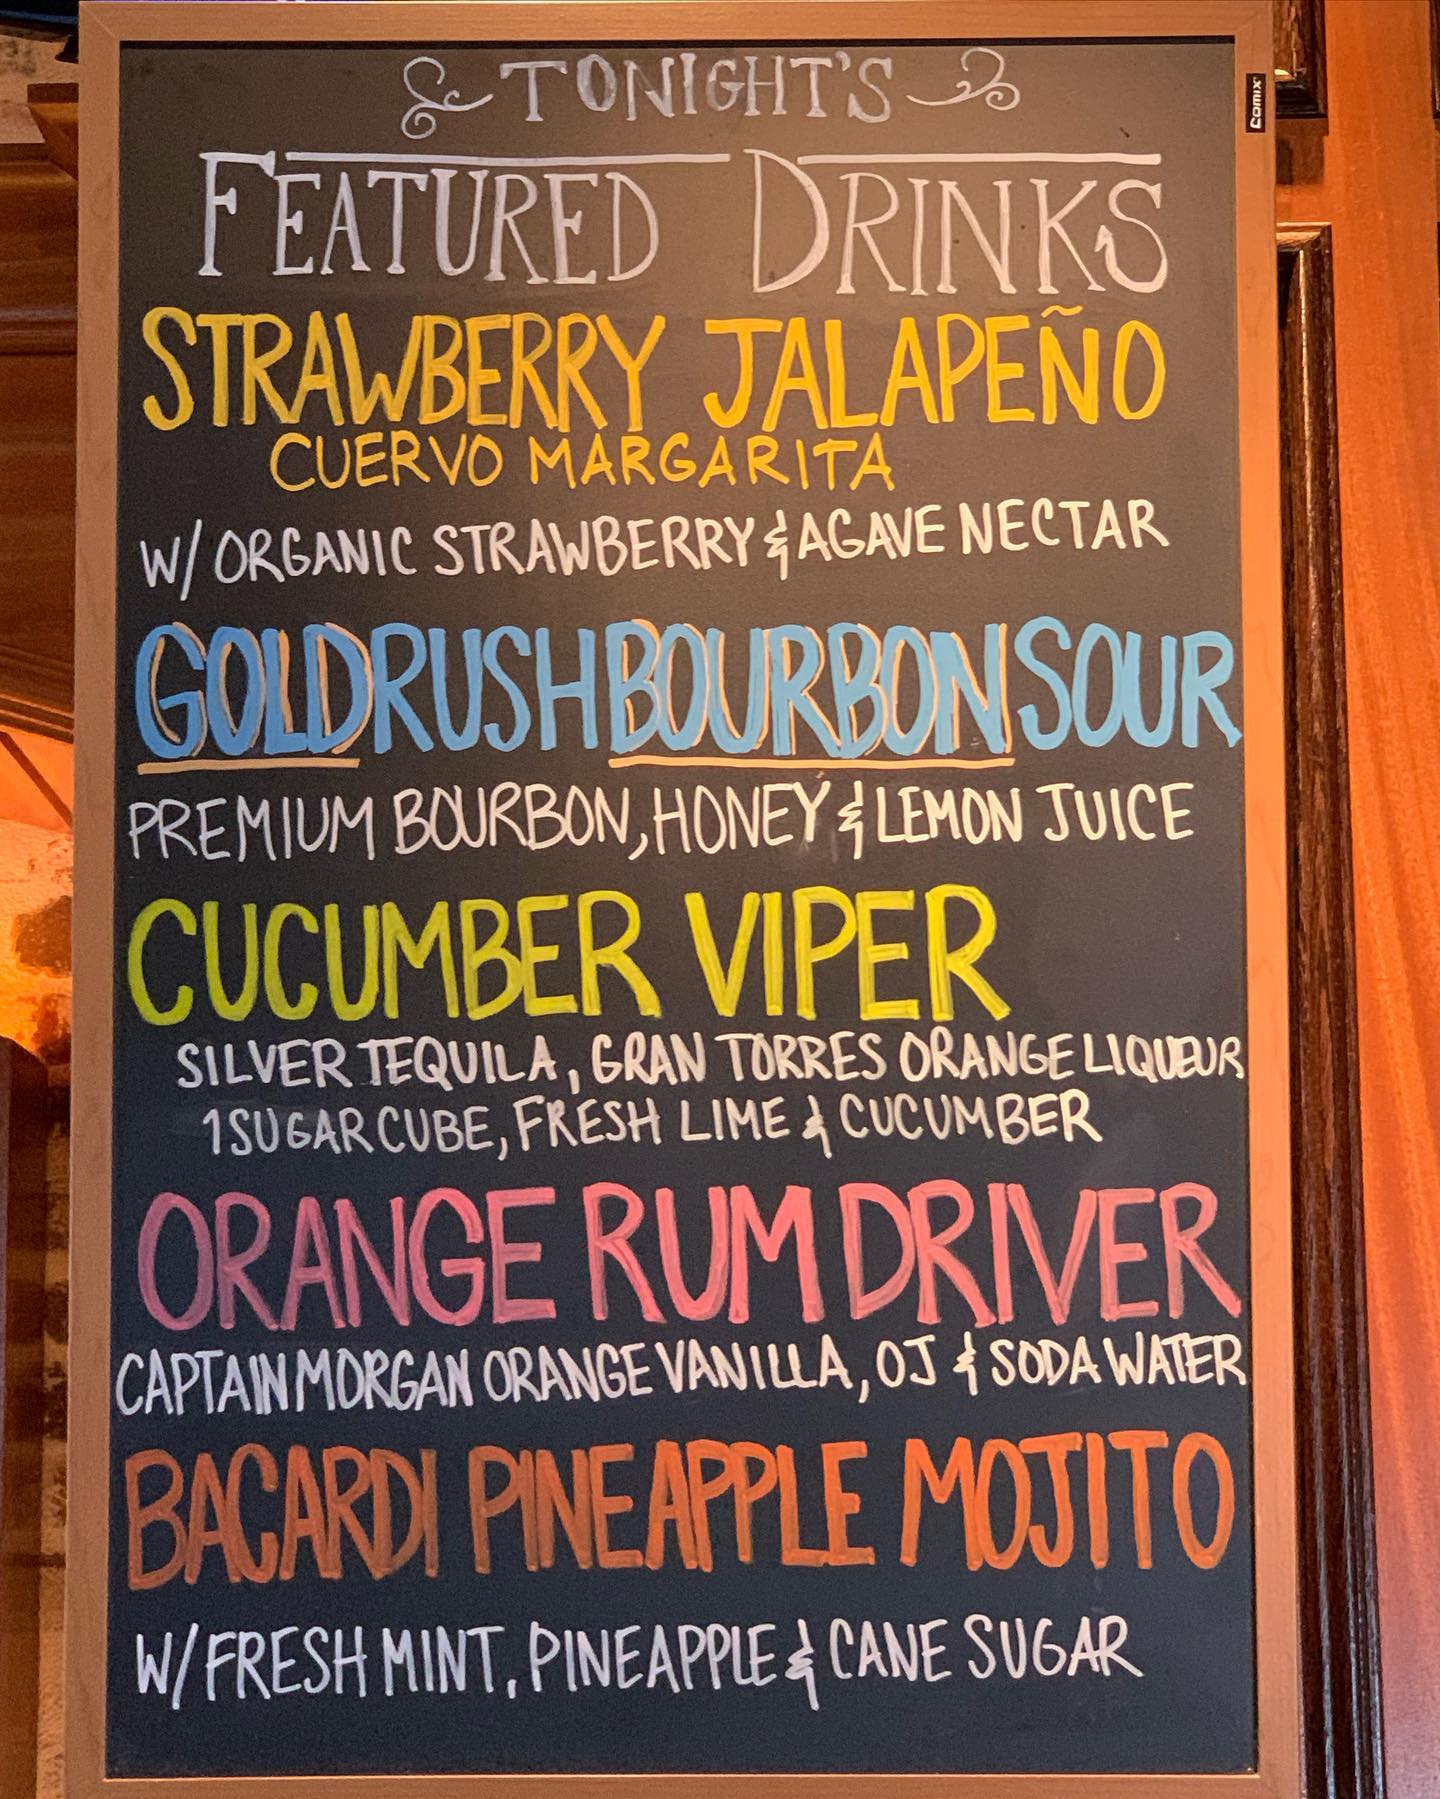 TONIGHT'S
FEATURED DRINKS
STRAWBERRY JALAPEÑO
CUERVO MARGARITA
W/ ORGANIC STRAWBERRY & AGAVE NECTAR
GOLD RUSH BOURBON SOUR
PREMIUM BOURBON, HONEY & LEMON JUICE
CUCUMBER VIPER
SILVER TEQUILA, GRAN TORRES ORANGE LIQUEUR
1 SUGAR CUBE, FRESH LIME & CUCUMBER
ORANGE RUM DRIVER
CAPTAIN MORGAN ORANGE VANILLA, OJ & SODA WATER
BACARDI PINEAPPLE MOJITO
W/ FRESH MINT, PINEAPPLE & CANE SUGAR
Comix